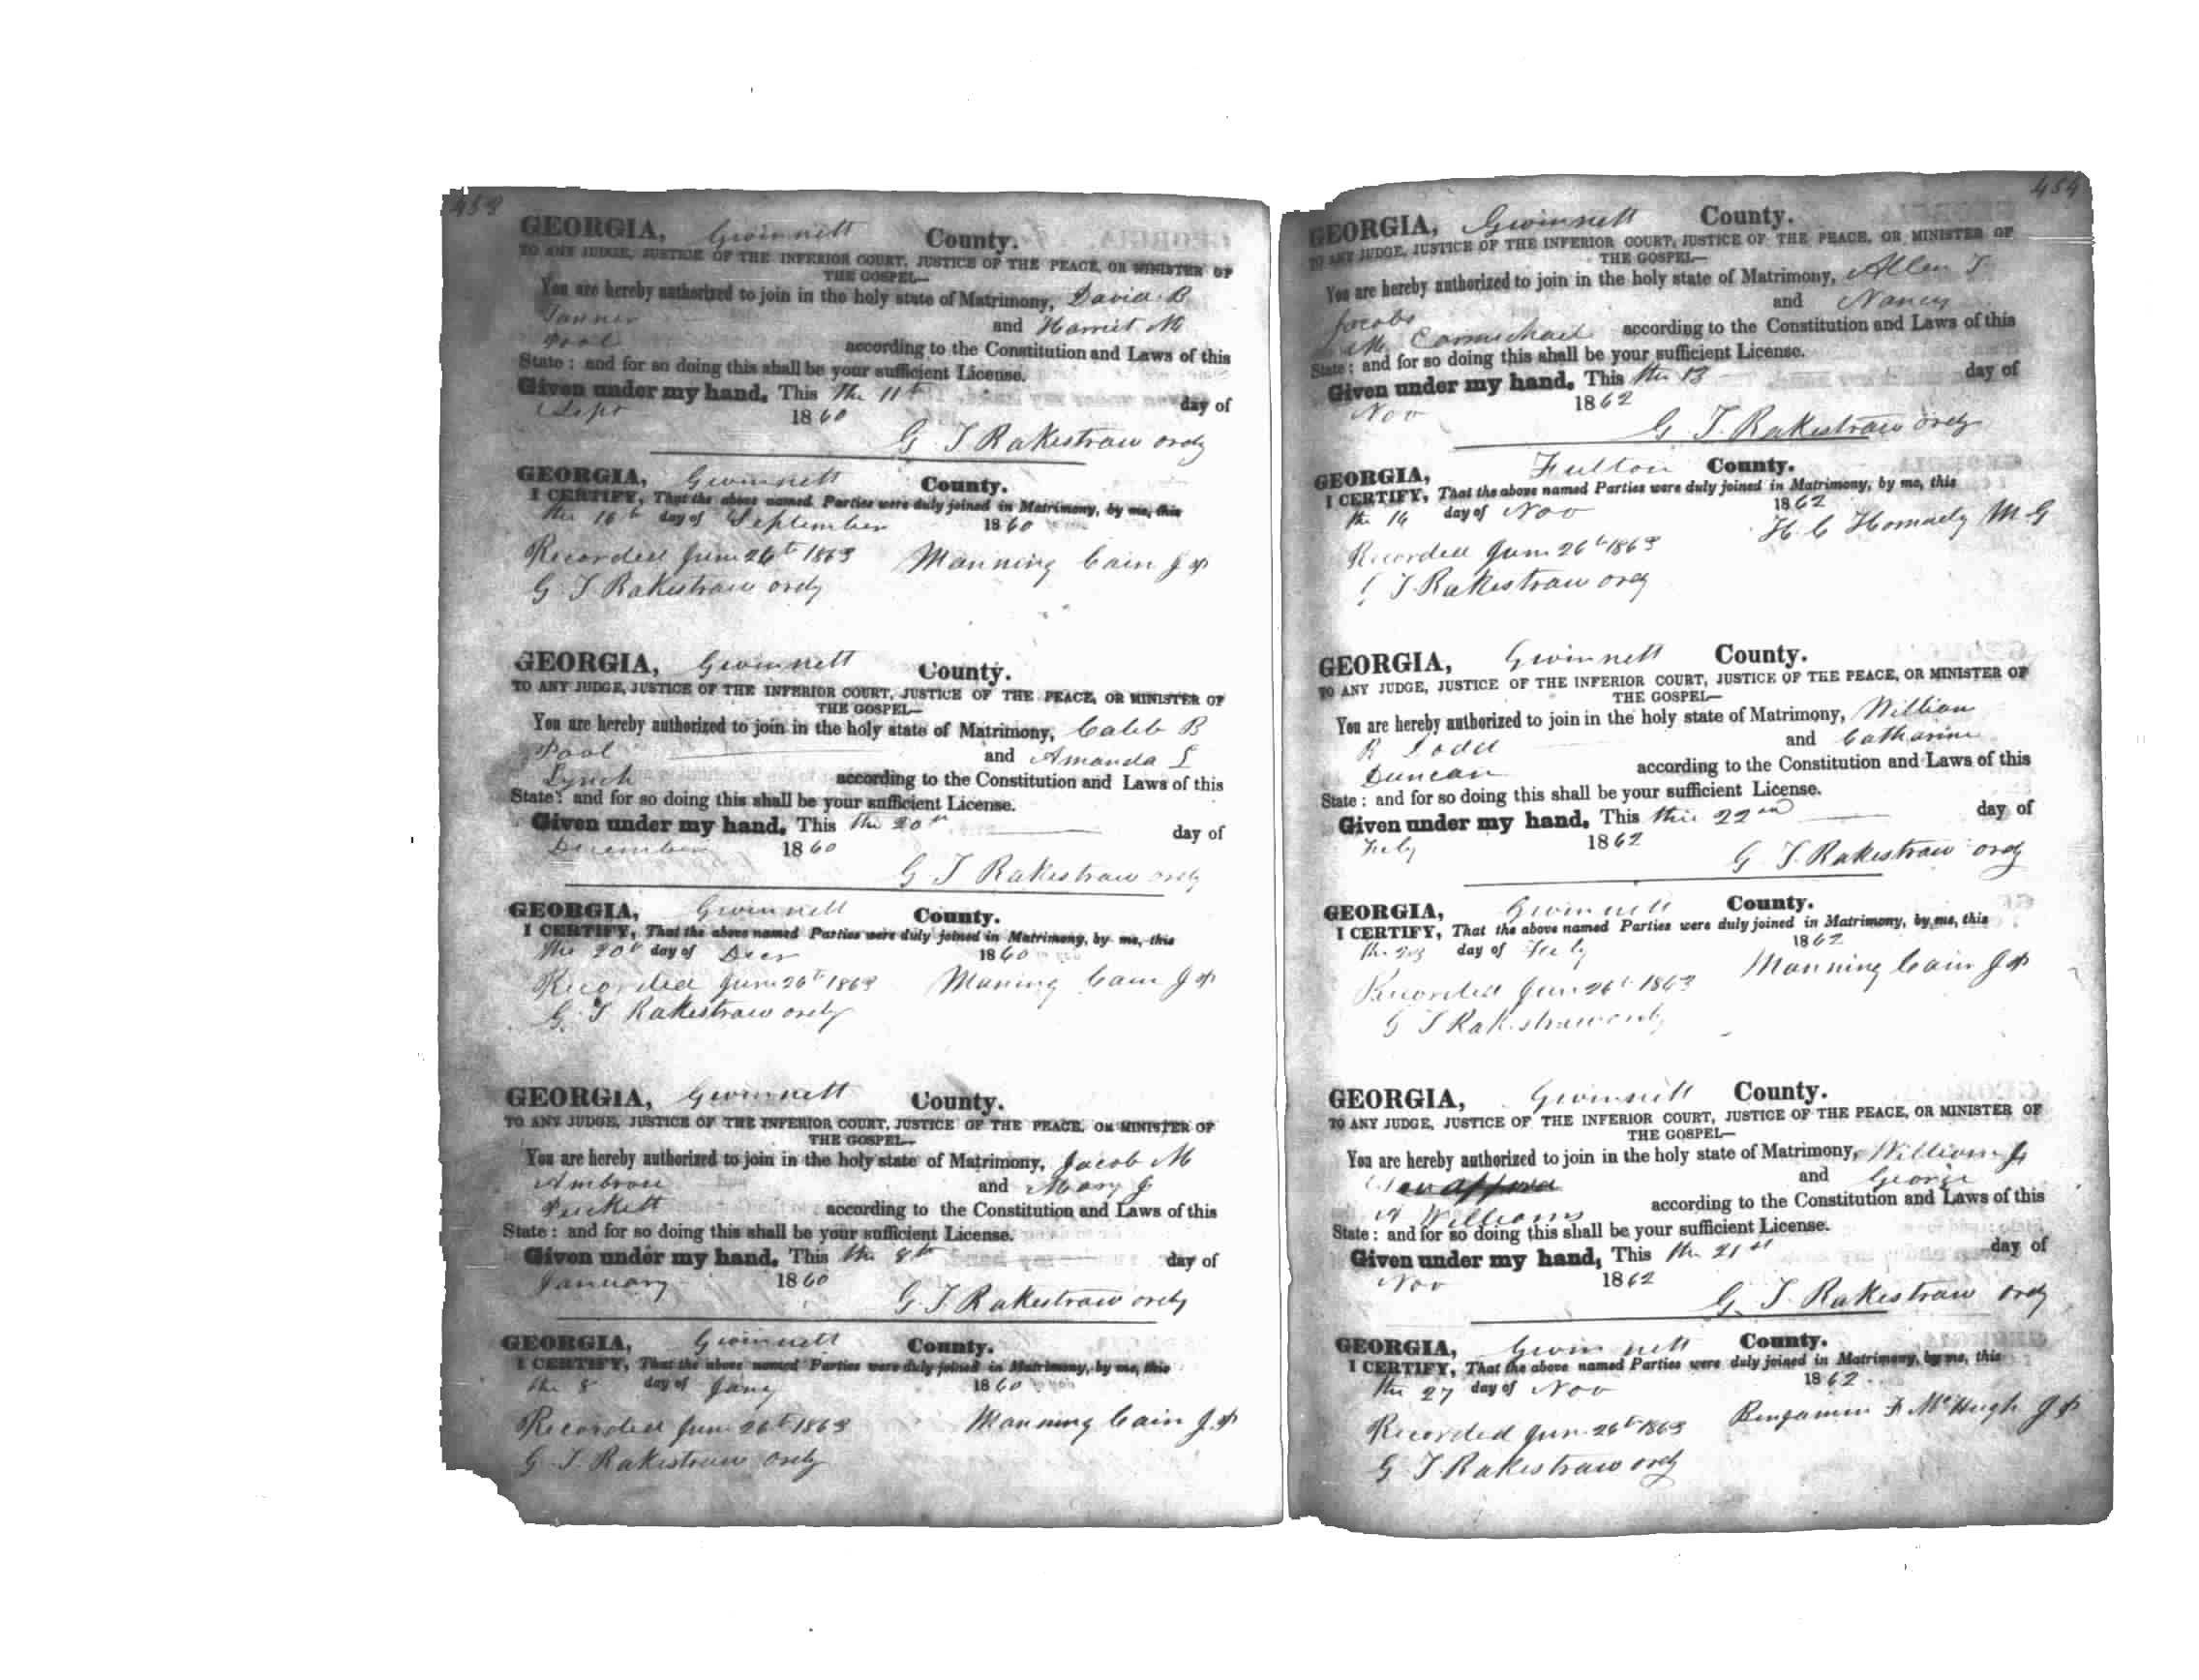 453
GEORGIA, Gwinnett County.
TO ANY JUDGE, JUSTICE OF THE INFERIOR COURT, JUSTICE OF THE PEACE, OR MINISTER OF
THE GOSPEL—
You are hereby authorized to join in the holy state of Matrimony, David B
Tanner and Harriet M
Pool according to the Constitution and Laws of this
State: and for so doing this shall be your sufficient License.
Given under my hand, This the 11th day of
Sept 1860
G T Rakestraw ordy
GEORGIA, Gwinnett County.
I CERTIFY, That the above named Parties were duly joined in Matrimony, by me, this
the 16th day of September 1860
Recorded June 26th 1863 Manning Cain J P
G T Rakestraw ordy
GEORGIA, Gwinnett County.
TO ANY JUDGE, JUSTICE OF THE INFERIOR COURT, JUSTICE OF THE PEACE, OR MINISTER OF
THE GOSPEL—
You are hereby authorized to join in the holy state of Matrimony, Caleb B
Pool and Amanda
Lynch according to the Constitution and Laws of this
State: and for so doing this shall be your sufficient License.
Given under my hand, This the 20th day of
December 1860
G T Rakestraw ordy
GEORGIA, Gwinnett County.
I CERTIFY, That the above named Parties were duly joined in Matrimony, by me, this
the 20th day of Decr 1860
Recorded June 26th 1863 Maning Cain J P
G. T Rakestraw ordy
GEORGIA, Gwinnett County.
TO ANY JUDGE, JUSTICE OF THE INFERIOR COURT, JUSTICE OF THE PEACE, OR MINISTER OF
THE GOSPEL—
You are hereby authorized to join in the holy state of Matrimony, Jacob M
Ambrose and Mary J
Puckett according to the Constitution and Laws of this
State: and for so doing this shall be your sufficient License.
Given under my hand, This the 8th day of
January 1860
G. T Rakestraw ordy
GEORGIA, Gwinnett County.
I CERTIFY, That the above named Parties were duly joined in Matrimony, by me, this
the 8 day of Jany 1860
Recorded June 26th 1863 Manning Cain J. P
G. T. Rakestraw ordy
454
GEORGIA, Gwinnett County.
TO ANY JUDGE, JUSTICE OF THE INFERIOR COURT, JUSTICE OF THE PEACE, OR MINISTER OF
THE GOSPEL—
You are hereby authorized to join in the holy state of Matrimony, Allen T
Jacobs and Nancy
M Carmichael according to the Constitution and Laws of this
State: and for so doing this shall be your sufficient License.
Given under my hand, This the 13 day of
Nov 1862
G. T. Rakestraw ordy
GEORGIA, Fulton County.
I CERTIFY, That the above named Parties were duly joined in Matrimony, by me, this
the 16 day of Nov 1862
H. C Hornady M G
Recorded June 26th 1863
T Rakestraw ordy
GEORGIA, Gwinnett County.
TO ANY JUDGE, JUSTICE OF THE INFERIOR COURT, JUSTICE OF THE PEACE, OR MINISTER OF
THE GOSPEL—
You are hereby authorized to join in the holy state of Matrimony, William
and Catharine
Duncan according to the Constitution and Laws of this
State: and for so doing this shall be your sufficient License.
Given under my hand, This this 22nd day of
Feby 1862
G T. Rakestraw ordy
GEORGIA, Gwinnett County.
I CERTIFY, That the above named Parties were duly joined in Matrimony, by me, this
the 23 day of Feby 1862
Recorded June 26th 1863 Manning Cain J P
G T Rakestraw ordy
GEORGIA, Gwinnett County.
TO ANY JUDGE, JUSTICE OF THE INFERIOR COURT, JUSTICE OF THE PEACE, OR MINISTER OF
THE GOSPEL—
You are hereby authorized to join in the holy state of Matrimony, William J
and George
A Williams according to the Constitution and Laws of this
State: and for so doing this shall be your sufficient License.
Given under my hand, This the 21st day of
Nov 1862
G. T Rakestraw ordy
GEORGIA, Gwinnett County.
I CERTIFY, That the above named Parties were duly joined in Matrimony, by me, this
the 27 day of Nov 1862
Recorded June 26th 1863 Benjamin F McHugh J P
G T Rakestraw ordy